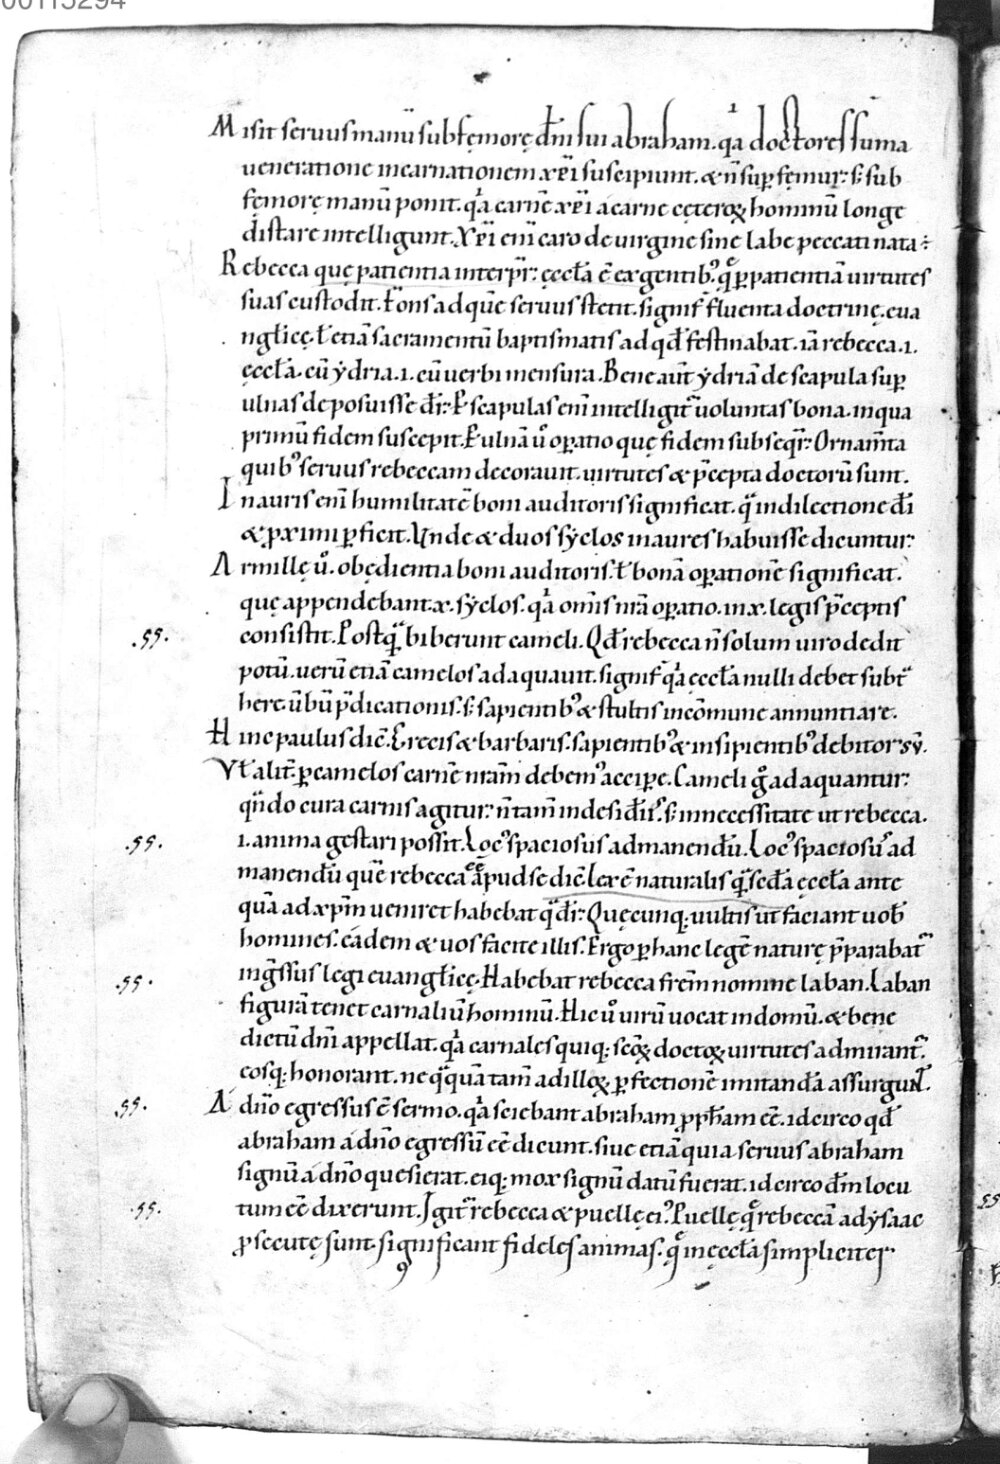 00113294
Misit seruus manū sub femore dn̄i sui abraham. qa doctores suma
ueneratione incarnationem xp̄i suscipiunt. & n̄ sup̱ femur: s; sub
femore manū ponit. qa carnē xp̄i a carne cęteroꝝ hominū longe
distare intelligunt. Xp̄i eni caro de uirgine sine labe peccati nata ÷
Rebecca quę patientia interp̄r: ęccła ē ex gentib; quę ꝑ patientiā uirtutes
suas custodit. Fons ad quē seruus stetit. signif̄ fluenta doctrinę. eua
nglicę. ł etiā sacramentū baptismatis ad qđ festinabat. iā rebecca .i.
ęccła. cū ydria .i. cū uerbi mensura. Bene aūt ydriā de scapula sup̱
ulnas deposuisse dr̄: P scapulas eni intelligit̄ uoluntas bona. in qua
primū fidem suscepit. P ulnā u̇ oꝑatio quę fidem subseqr̄: Ornam̄ta
quib; seruus rebeccam decorauit. uirtutes & p̄cepta doctorū sunt.
Inauris eni humilitatē boni auditoris significat. q̄ in dilectione dī
& ꝓximi ꝑficit. Unde & duos syclos inaures habuisse dicuntur:
Armillę u̇. obędientia boni auditoris. ł bonā oꝑationē significat.
quę appendebant .x. syclos. qa om̄is nr̄a oꝑatio. in .x. legis p̄ceptis
.ss. consistit. Postq̄ biberunt cameli. Qđ rebecca n̄ solum uiro dedit
potū. uerū etiā camelos adaquauit. signif̄ qa ęccła nulli debet subt̄
here ūbū p̄dicationis. s; sapientib; & stultis in cōmune annuntiare.
Hinc paulus dic̄. Grecis & barbaris. sapientib; & insipientib; debitor sū.
Vł alit̄. ꝑ camelos carnē nr̄am debem; accipe. Cameli g̊ adaquantur:
qn̄do cura carnis agitur: n̄ tam̄ in desideriis. s; in necessitate ut rebecca.
.ss. .i. anima gestari possit. Loc; spaciosus ad manendū. Loc; spaciosus ad
manendū quē rebecca apud se dic̄ ee. Lex ē naturalis q̄ sc̄da ęccła ante
quā ad xp̄m ueniret habebat q̄ dr̄: Quęcunq; uultis ut faciant uob̄
homines. eadem & uos facite illis. Ergo ꝑ hanc legē naturę p̄parabat̄
.ss. ingssus legi euanglicę. Habebat rebecca frēm nomine laban. Laban
figurā tenet carnaliū hominū. Hic u̇ uirū uocat in domū. & bene
dictū dn̄i appellat. qa carnales quiq; sc̄oꝝ doctoꝝ uirtutes admirant̄.
eosq; honorant. ne q̄quā tam̄ ad illoꝝ ꝑfectionē imitandā assurgunt.
.ss. A dn̄o egressus ē sermo. qa sciebant abraham ꝓph̄am ēē. idcirco qđ
abraham a dn̄o egressū ēē dicunt. siue etiā quia seruus abraham
signū a dn̄o quesierat. eiq; mox signū datū fuerat. idcirco dn̄m locu
.ss. tum ēē dixerunt. Igit̄ rebecca & puellę ei;. Puellę quę rebeccā ad ysaac
ꝓsecutę sunt. significant fideles animas. quę in ęccła simpliciter